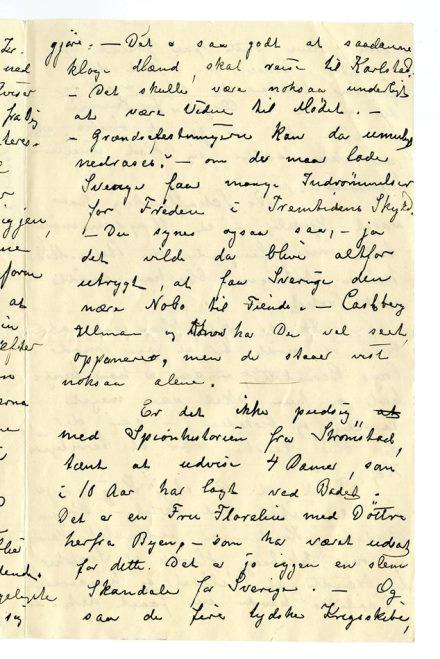 gjøre. — Det er saa godt at saadanne
kloge Mænd, skal reise til Karlstad.
— Det skulle være noksaa underligt
at være Vidne til Mødet. —
— Grændsefestningerne kan da umulig
nedrases? — om de maa lade
Sverige faa mange Indrömmelser
for Freden i Fremtidens Skyld.
— Du synes ogsaa saa, — ja
det vilde da blive altfor
utrygt, at faa Sverige den
nære Nabo til Fiende. — Castberg
Ullman og har Du vel seet,
opponerer, men de staaer vist
noksaa alene.
Er det ikke pudsig at
med Spionhistorien fra Strömstad,
tænk at udvise 4 Damer, som
i 10 Aar har ligt ved Badet.
Det er en Fru Florelius med Döttre
herfra Byen, — som har været udsat
for dette. Det er jo igjen en slem
Skandale for Sverige. — Og
saa de fire tydske Krigsskibe,